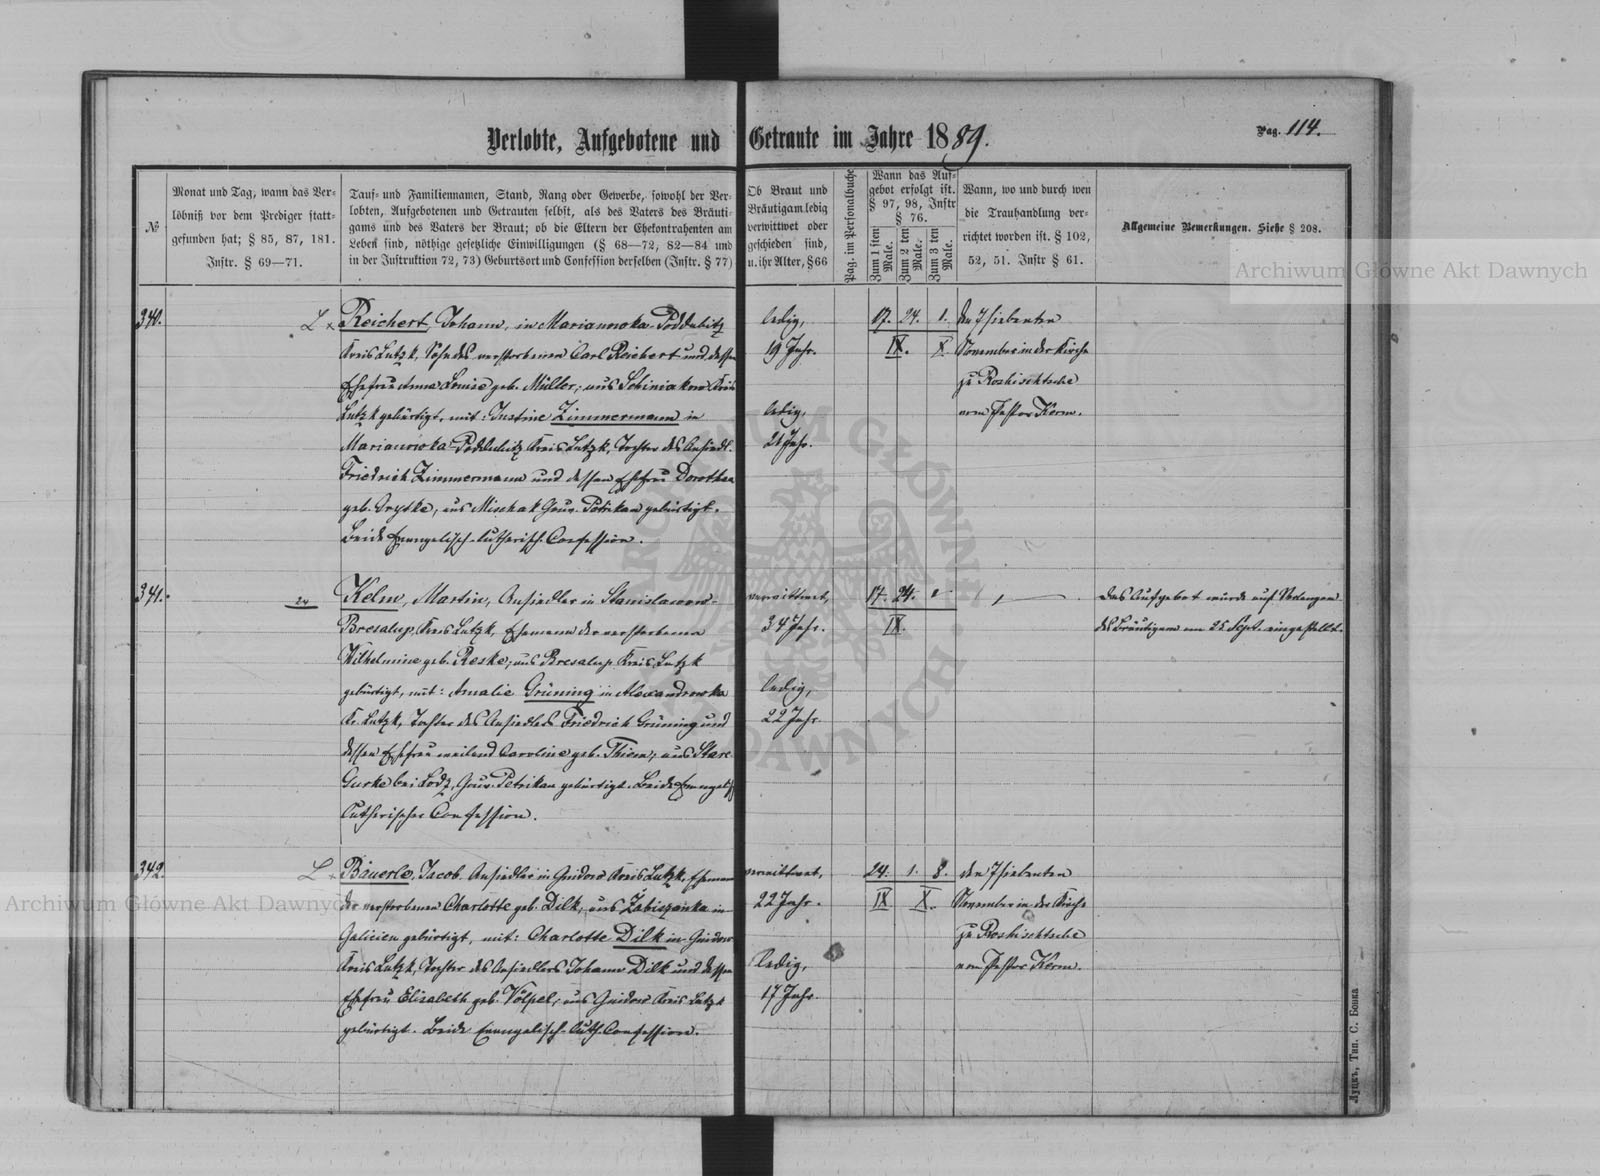 Verlobte, Aufgebotene und Getraute im Jahre 1889.
Pag. 114.
№
Monat und Tag, wann das Ver-
löbniß vor dem Prediger statt-
gefunden hat; § 85, 87, 181.
Instr. § 69—71.
Tauf- und Familiennamen, Stand, Rang oder Gewerbe, sowohl der Ver-
lobten, Aufgebotenen und Getrauten selbst, als des Vaters des Bräuti-
gams und des Vaters der Braut; ob die Eltern der Ehekontrahenten am
Leben sind, nöthige gesetzliche Einwilligungen (§ 68—72, 82—84 und
in der Instruktion 72, 73) Geburtsort und Confession derselben (Instr. § 77)
Ob Braut und
Bräutigam ledig
verwittwet oder
geschieden sind,
u. ihr Alter, § 66
Pag. im Personalbuche
Wann das Auf-
gebot erfolgt ist.
§ 97, 98, Instr
§ 76.
Zum 1 sten Male.
Zum 2 ten Male.
Zum 3 ten Male.
Wann, wo und durch wen
die Trauhandlung ver-
richtet worden ist. § 102,
52, 51. Instr § 61.
Allgemeine Bemerkungen. Siehe § 208.
Archiwum Główne Akt Dawnych
340.
L × Reichert, Johann, in Marianowka-Poddubitz
Kreis Lutzk, Sohn des verstorbenen Carl Reichert und dessen
Ehefrau Anna Louise geb. Müller, aus Kreis
Lutzk gebürtigt, mit: Justine Zimmermann in
Marianowka-Poddubitz Kreis Lutzk, Tochter des Ansiedl.
Friedrich Zimmermann und dessen Ehefrau Dorothea
geb. aus Mischak Gouv. Petrikau gebürtigt.
Beide Evangelisch-lutherisch. Confession.
ledig,
19 Jahr.
ledig,
21 Jahr.
17. 24. 1.
IX. X.
den 7 siebenten
November in der Kirche
zu Roshischtsche
vom Pastor Kerm.
341.
24
Kelm, Martin, Ansiedler in Stanislawow-
Bresalup, Kreis Lutzk, Ehemann der verstorbenen
Wilhelmine geb. Reske, aus Bresalup Kreis Lutzk
gebürtigt, mit: Amalie Grüning in Alexandrowka
Kr. Lutzk, Tochter des Ansiedlers Friedrich Grüning und
dessen Ehefrau weiland Caroline geb. Thiem, aus Stare-
Gurke bei Lodz, Gouv. Petrikau gebürtigt. Beide Evangelisch
Lutherischer Confession.
verwittwet,
34 Jahr.
ledig,
22 Jahr
17. 24.
IX.
Das Aufgebot wurde auf Verlangen
des Bräutigams am 25 Sept. eingestellt.
342.
L × Bäuerle, Jacob, Ansiedler in Gnidow Kreis Lutzk, Ehemann
der verstorbenen Charlotte geb. Dilk, aus in
Galicien gebürtigt, mit: Charlotte Dilk in Gnidow
Kreis Lutzk, Tochter des Ansiedlers Johann Dilk und dessen
Ehefrau Elisabeth geb. Völpel, aus Gnidow Kreis Lutzk
gebürtigt. Beide Evangelisch-Luth. Confession.
verwittwet,
22 Jahr.
ledig,
17 Jahr.
24. 1. 8.
IX X.
den 7 siebenten
November in der Kirche
zu Roshischtsche
vom Pastor Kerm.
Archiwum Główne Akt Dawnych
ARCHIWUM GŁÓWNE AKT DAWNYCH
Луцкъ, Тип. С. Бонка